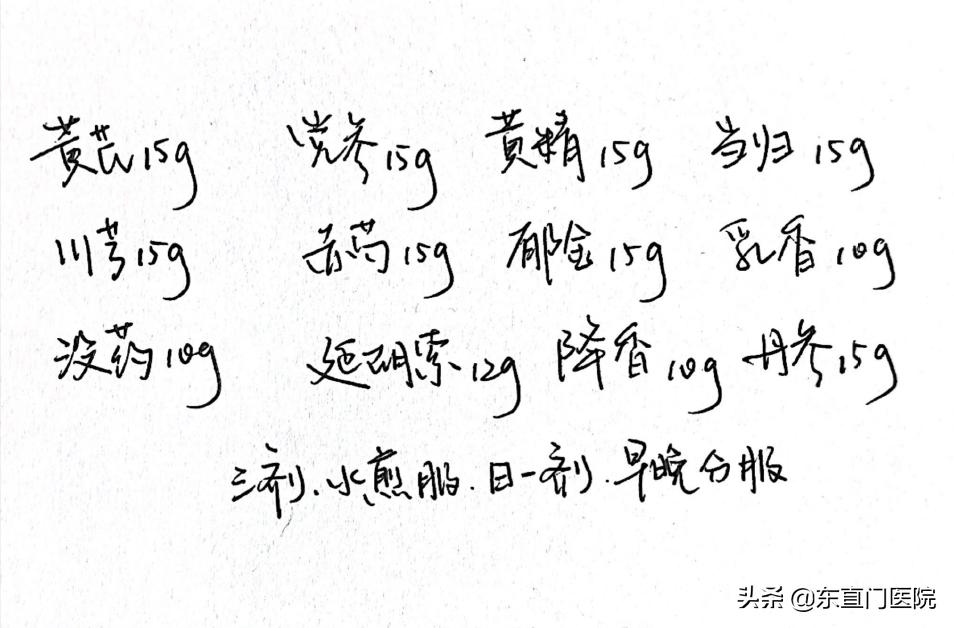 黄芪15g 党参15g 黄精15g 当归15g
川芎15g 赤芍15g 郁金15g 乳香10g
没药10g 延胡索12g 降香10g 丹参15g
三剂.水煎服.日一剂.早晚分服
头条 @东直门医院